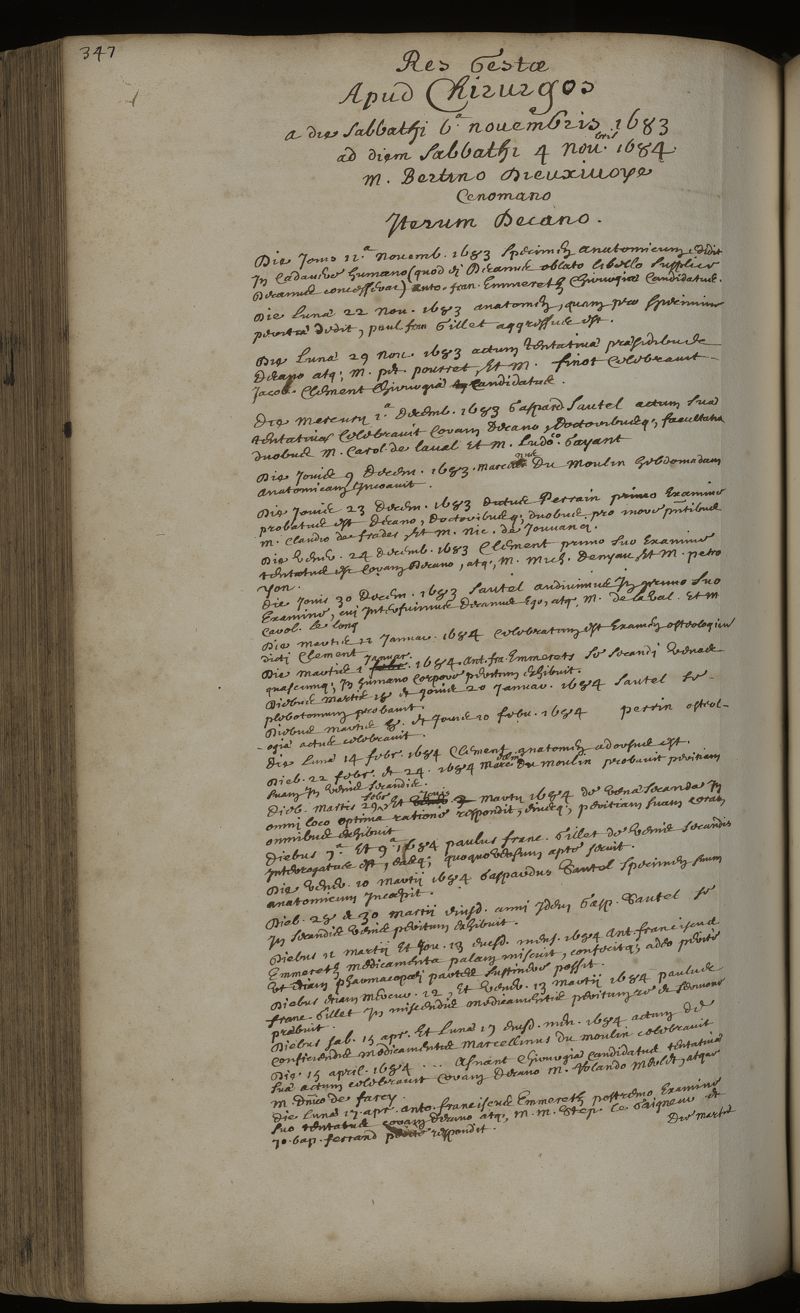 347
Res Gestæ
Apud Chirurgos
a die Sabbathi 6ª novembris 1683
ad diem Sabbathi 4 Nov.bris 1684
M. Bertino Dieuxivoye
Cenomano
Iterum Decano.
Die Jovis 11.ª Novemb. 1683 Specimen anatomicum edidit
In Cadavere humano (quod ei Decanus oblato libello supplice
Decanus concesserat) Anto. fran. Emmerets Chirurgiæ Candidatus.
Die Lunæ 22 Nov. 1683 anatomen, quam pro specimine
peritiæ dedit, paul fran Gillet aggressus est.
Die Lunæ 29 Nov. 1683 actum tentativæ præsidibus
Decano atq; M. pet. pourret, Et M. finot Celebravit
Jacob. Clement Chirurgiæ Candidatus.
Die Mercurij 1.ª Decemb. 1683 Gaspard Sautel actum suæ
tentativæ Celebravit Coram Decano, Doctoribusq; facultatis
duobus M. Carol. de laval Et M. Ludo. Gayant
Die Jovis 9 Decem. 1683. Marcellinus Du Moulin hebdomadam
anatomicam Inchoavit.
Die Jovis 23 Decem. 1683 Perrain primo Examine
probatus est Decano, Doctoribusq; duobus pro more
M. Claudio de frades, Et M. Nic. de Jouvanci.
Die Vener. 24 Decemb. 1683 Clement primo suo Examine
tentatus est Coram Decano, atq; M. Mich. Denyau, Et M. petro
Yon.
Die Jovis 30 Decem. 1683 Sautel audivimus In primo suo
Examine, cui Interfuimus Decanus Ego, atq; M. de laval. et M
Carol. le long
Die Martis 11 Januar. 1684 Celebratum est Examen osteologicum
dicti Clement
Die Martis 1 Januar. 1684 Ant. fra. Emmerets se secandi venas
quascumq; In humano corpore peritum exhibuit.
Diebus Martis 18 et Jovis 20 Januar. 1684 Sautel se
phlebotomum probavit.
Diebus Martis 8. et Jovis 10 febr. 1684 perrin osteol-
-ogiæ actus celebravit.
Die Lunæ 14 febr. 1684 Clement anatomen adorsus est.
Dieb. 22 febr. et 24. 1684 Marcellinus Du moulin probavit peritiam
suam In venis secandis.
Dieb. Martis 29 febr. Et Jovis 2 Martij 1684 de vena secanda In
omni loco optima ratione respondit, peritiam suam coram
omnibus exhibuit
Diebus 7.ª Et 9.ª 1684 paulus franc. Gillet de venis secandis
Interrogatus est, easq; quoquoversum apte secuit.
Die Vener. 10 Martij 1684 Gaspardus Sautel specimen suum
anatomicum Incæpit.
Dieb. 28 et 30 Martij eiusd. anni Idem Gasp. Sautel se
In secandis venis peritum exhibuit.
Diebus 11 martij Et Jov. 13 eusd. mens. 1684 Ant. franciscus
Emmerets Medicamenta palam miscuit, confecitq; adeo perite
Ut etiam pharmacopæi partes sustinere possit.
Diebus etiam Mercur. 12, Et Vener. 13 Martij 1684 paulus
franc. Gillet In miscendis medicamentis peritum re et sermone
præbuit.
Diebus Sab. 15 apr. Et Lunæ 17 eusd. men. 1684 actum de
Conficiendis medicamentis Marcellinus du moulin celebravit
Die 15 april. 1684 ... Asnant Chirurgiæ Candidatus tentativæ
suæ actum celebravit Coram Decano M. Rolando Merlet, atque
M. Dnico de farcy.
Die Lunæ 17. apr. anto. franciscus Emmerets postremo Examine
suo tentatus coram Decano atq; M. M. Step. le Gaigneur et
Jo. bap. ferrand perite respondit.
Die Martis